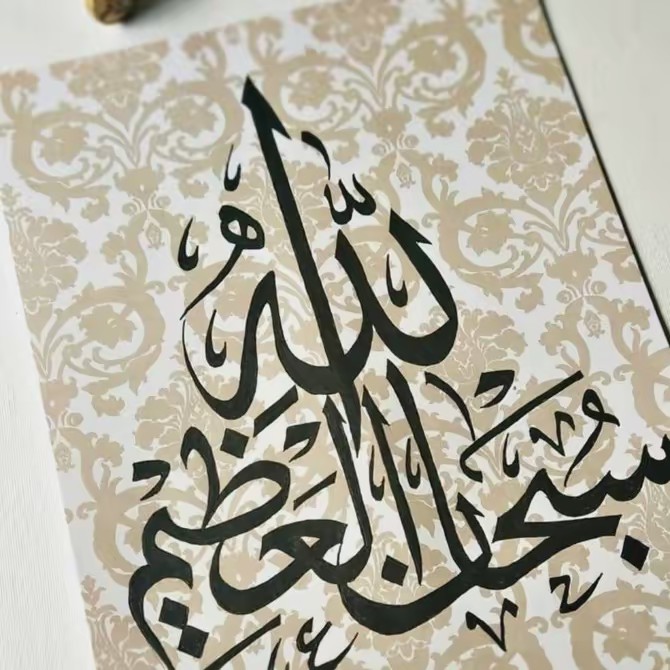 سُبْحَانَ اللهِ الْعَظِيمِ